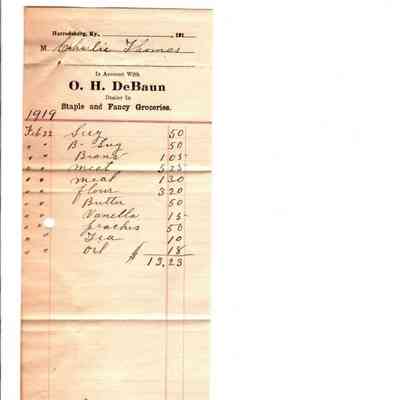 Harrodsburg, Ky., 191
M Charlie Thomas
In Account With
O. H. DeBaun
Dealer In
Staple and Fancy Groceries.
1919
Feb 22 Sug 50
" " B- Sug 50
" " Brand 1 05
" " meet 5 25
" " meal 1 30
" " flour 3 20
" " Butter 50
" " Vanella 15
" " peaches 50
" " Tea 10
" " oil 18
$ 13,23